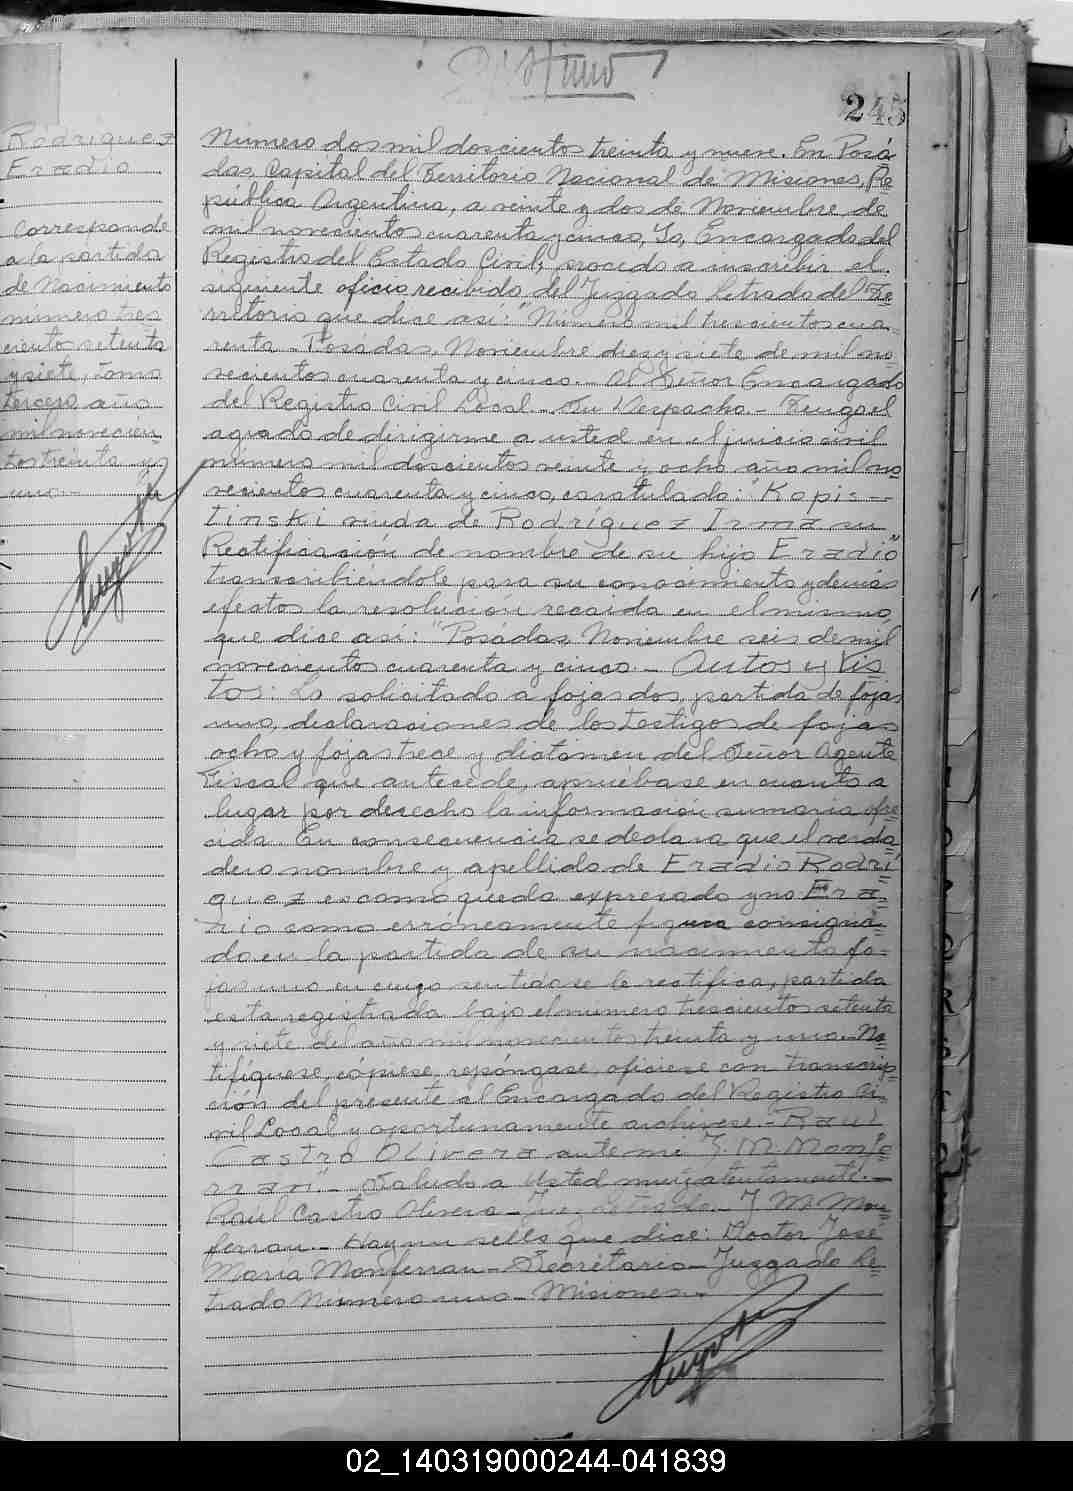 Ultimo
245
Rodriguez
Eradio
Corresponde
a la partida
de Nacimiento
número tres
cientos setenta
y siete, Tomo
tercero, año
mil novecien
tos treinta y
uno.-
Número dos mil doscientos treinta y nueve. En Posá
das, Capital del Territorio Nacional de Misiones, Re
pública Argentina, a veinte y dos de Noviembre de
mil novecientos cuarenta y cinco, Yo, Encargado del
Registro del Estado Civil, procedo a inscribir el
siguiente oficio recibido del Juzgado Letrado del Te
rritorio que dice así: "Número mil trescientos cua
renta - Posádas, Noviembre diez y siete de mil no
vecientos cuarenta y cinco.- Al Señor Encargado
del Registro Civil Local.- Su Despacho.- Tengo el
agrado de dirigirme a usted en el juicio civil
número mil doscientos veinte y ocho año mil no
vecientos cuarenta y cinco, caratulado: "Kopis-
tinski viuda de Rodríguez Irma su
Rectificación de nombre de su hijo Eradio"
transcribiéndole para su conocimiento y demás
efectos la resolución recaida en el mismo,
que dice así: "Posádas, Noviembre seis de mil
novecientos cuarenta y cinco.- Autos y Vis
tos: Lo solicitado a fojas dos, partida de fojas
uno, declaraciones de los testigos de fojas
ocho y fojas trece y dictámen del Señor Agente
Fiscal que antecede, apruébase en cuanto a
lugar por derecho la información sumaria ofre
cida. En consecuencia se declara que el verda
dero nombre y apellido de Eradio Rodrí
guez es como queda expresado y no Era
rio como erróneamente figura consigna
do en la partida de su nacimiento fo-
jas uno en cuyo sentido se le rectifica, partida
esta registrada bajo el número trescientos setenta
y siete del año mil novecientos treinta y uno.- No
tifíquese, cópiese, repóngase, ofíciese con transcrip
ción del presente al Encargado del Registro Ci
vil Local y oportunamente archívese.- Raul
Castro Olivera ante mi J. M. Monfe
rran.- Saludo a Usted muy atentamente.-
Raúl Castro Olivera - Juez Letrado.- J. M. Mon
ferran.- Hay un sello que dice: Doctor José
María Monferran - Secretario - Juzgado Le
trado Número uno - Misiones.-
02_140319000244-041839